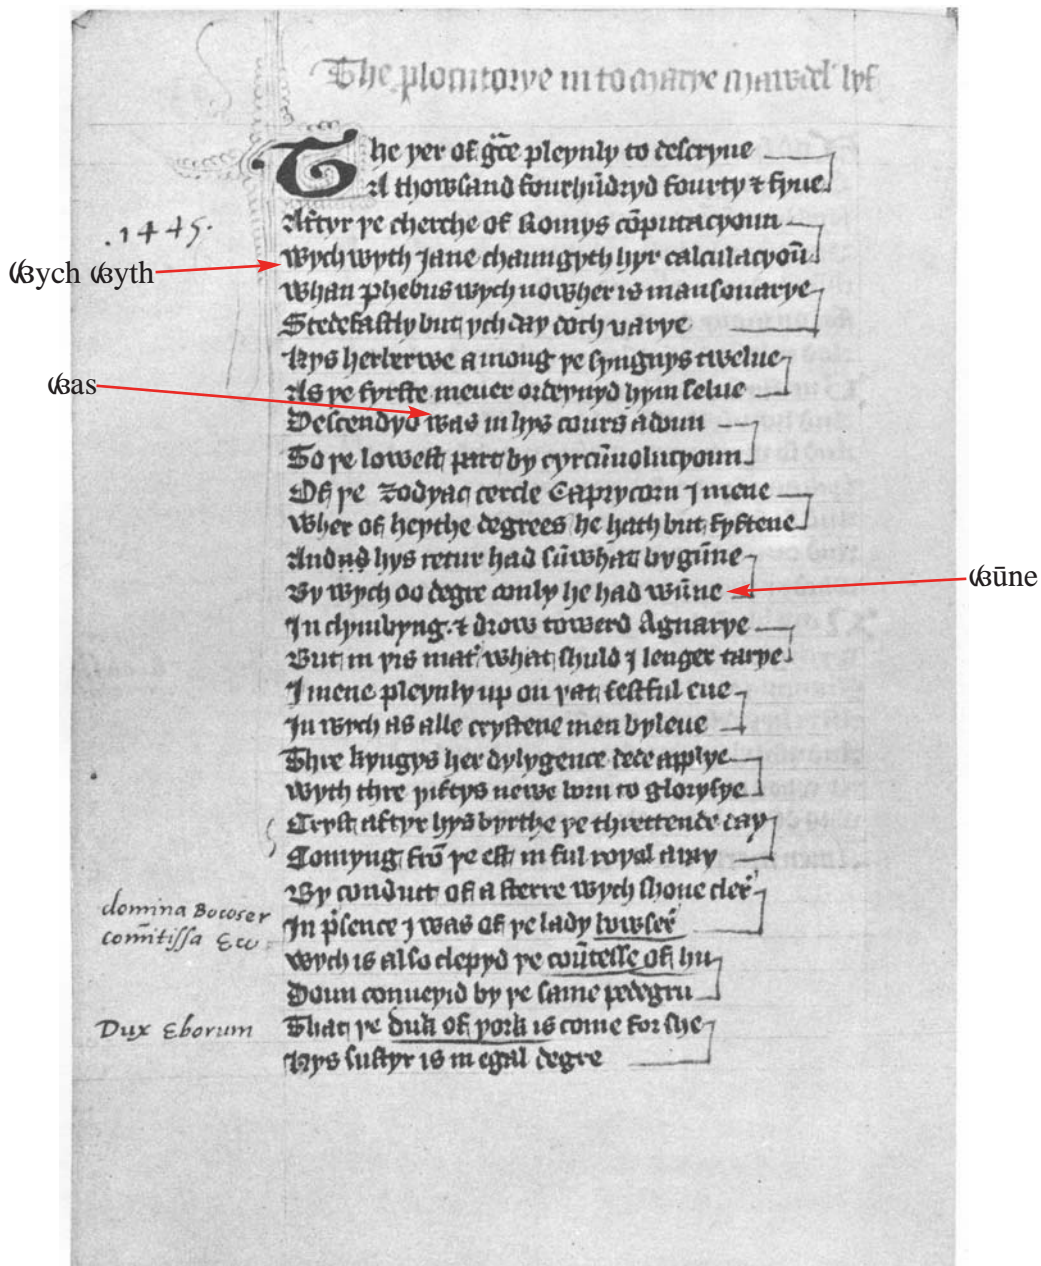 The prolocutorye in to marye mawdel' lyf
The yer of gr̄ce pleynly to descryue
A thowsand fourhūdryd fourty & fyue
Aftyr þe cherche of Romys cōputacyoun
.1445.
ꟃych ꟃyth
Wych wyth Jane chaungyth hyr calculacyoū
Whan phebus wych nowher is mansonarye
Stedefastly but ych day doth varye
ꟃas
Hys herberwe a mong þe syngnys twelue
As þe fyrste meuer ordeynyd hym selue
Descendyd was in hys cours adoun
To þe lowest part by cyrcūuolucyoun
Of þe zodyac cercle Caprycorn j mene
Wher of heythe degrees he hath but fyftene
And hys retur had sūwhat bygūne
By wych oo degre oonly he had wūne
ꟃūne
In clymbyng & drow towerd Aquarye
But in þis mat' what shuld j lenger tarye
I mene pleynly up on þat festful eue
In wych as alle crystene men byleue
Thre kyngys her dylygence dede applye
Wyth thre yiftys newe born to gloryfye
Cryst aftyr hys byrthe þe threttende day
Comyng frō þe est in ful royal aray
By conduct of a sterre wych shone cler'
domina Bocoser
In p'sence j was of þe lady bowseer̄
comitissa Ew
Wych is also clepyd þe coūtesse of hu
Doun conueyid by þe same pedegru
Dux Eborum
That þe duk of york is come for she
Hys sustyr is in egal degre